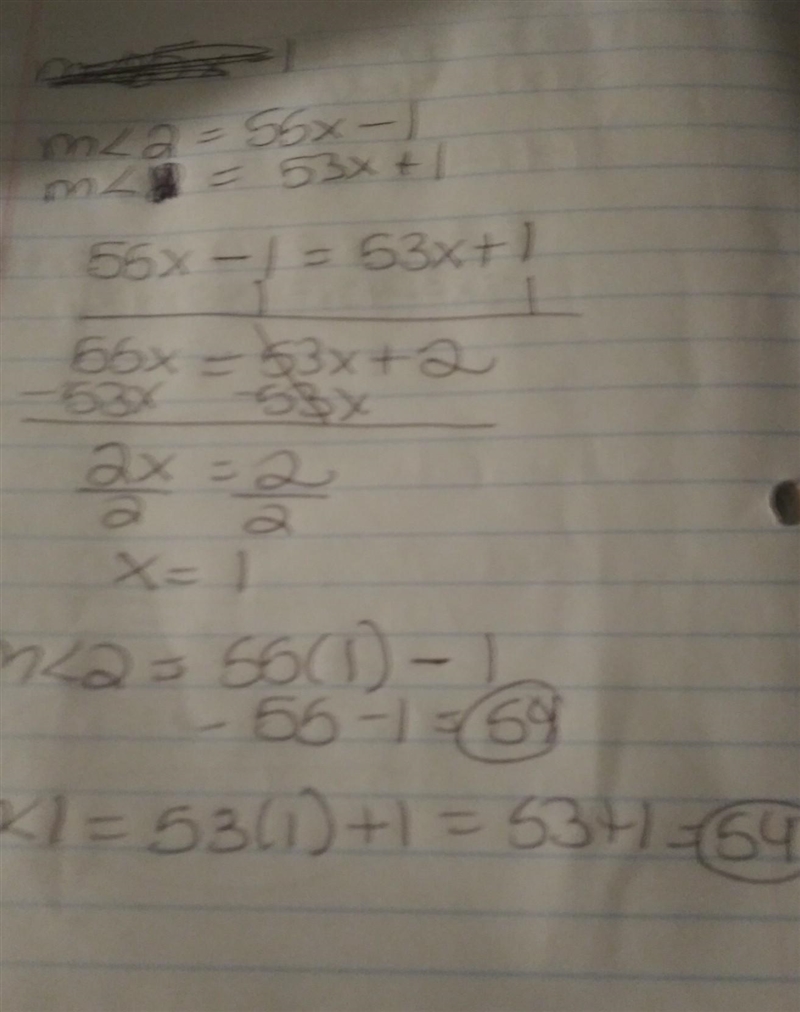 m<2 = 55x - 1
m<1 = 53x + 1
55x - 1 = 53x + 1
1 1
55x = 53x + 2
-53x -53x
2x = 2
2 2
x = 1
m<2 = 55(1) - 1
- 55 - 1 = 54
<1 = 53(1) + 1 = 53 + 1 = 54